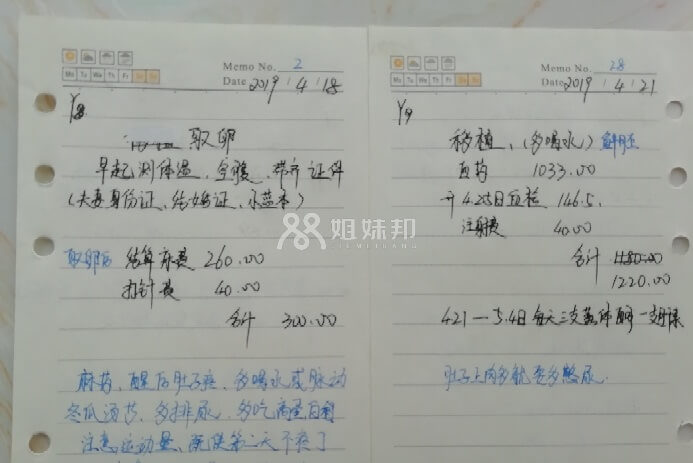 Memo No. 2
Mo Tu We Th Fr Sa Su
Date 2019 / 4 / 18
取卵
早起测体温、空腹、带齐证件
(夫妻身份证、结婚证、小蓝本)
取卵后 结算床费 260.00
打针费 40.00
合计 300.00
麻药、醒后肚子疼、多喝水或脉动
冬瓜汤、多排尿、多吃高蛋白
注意运动量、第二天不疼了
姐妹邦
JIEMEIBANG
Memo No. 28
Mo Tu We Th Fr Sa Su
Date 2019 / 4 / 21
移植、(多喝水) 鲜胚
药 1033.00
开4.25日血检 146.5
注射费 40.00
合计 1180.00
1220.00
4.21 — 5.4日 每天三支黄体酮 一支
肚子上肉多就要多憋尿.